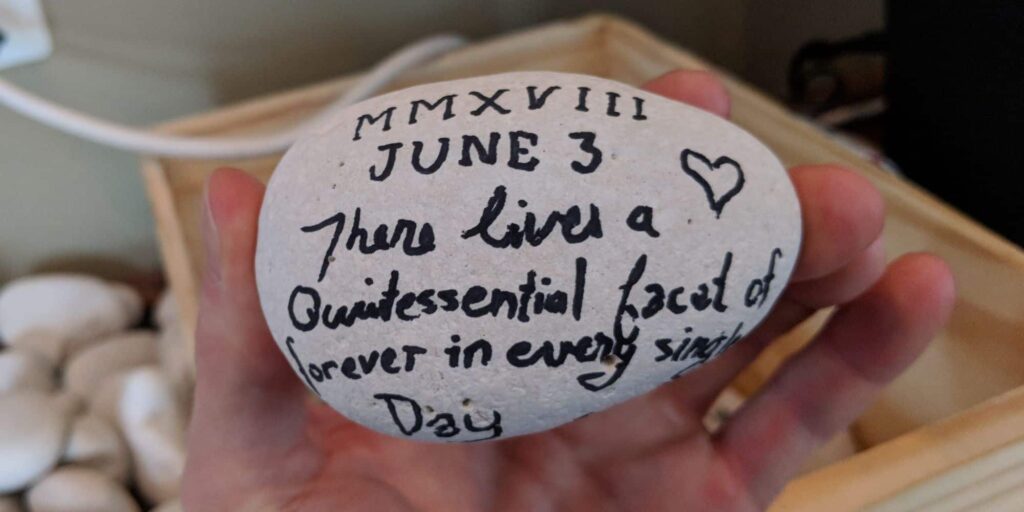 MMXVIII
JUNE 3
There lives a
Quintessential facet of
forever in every single
Day